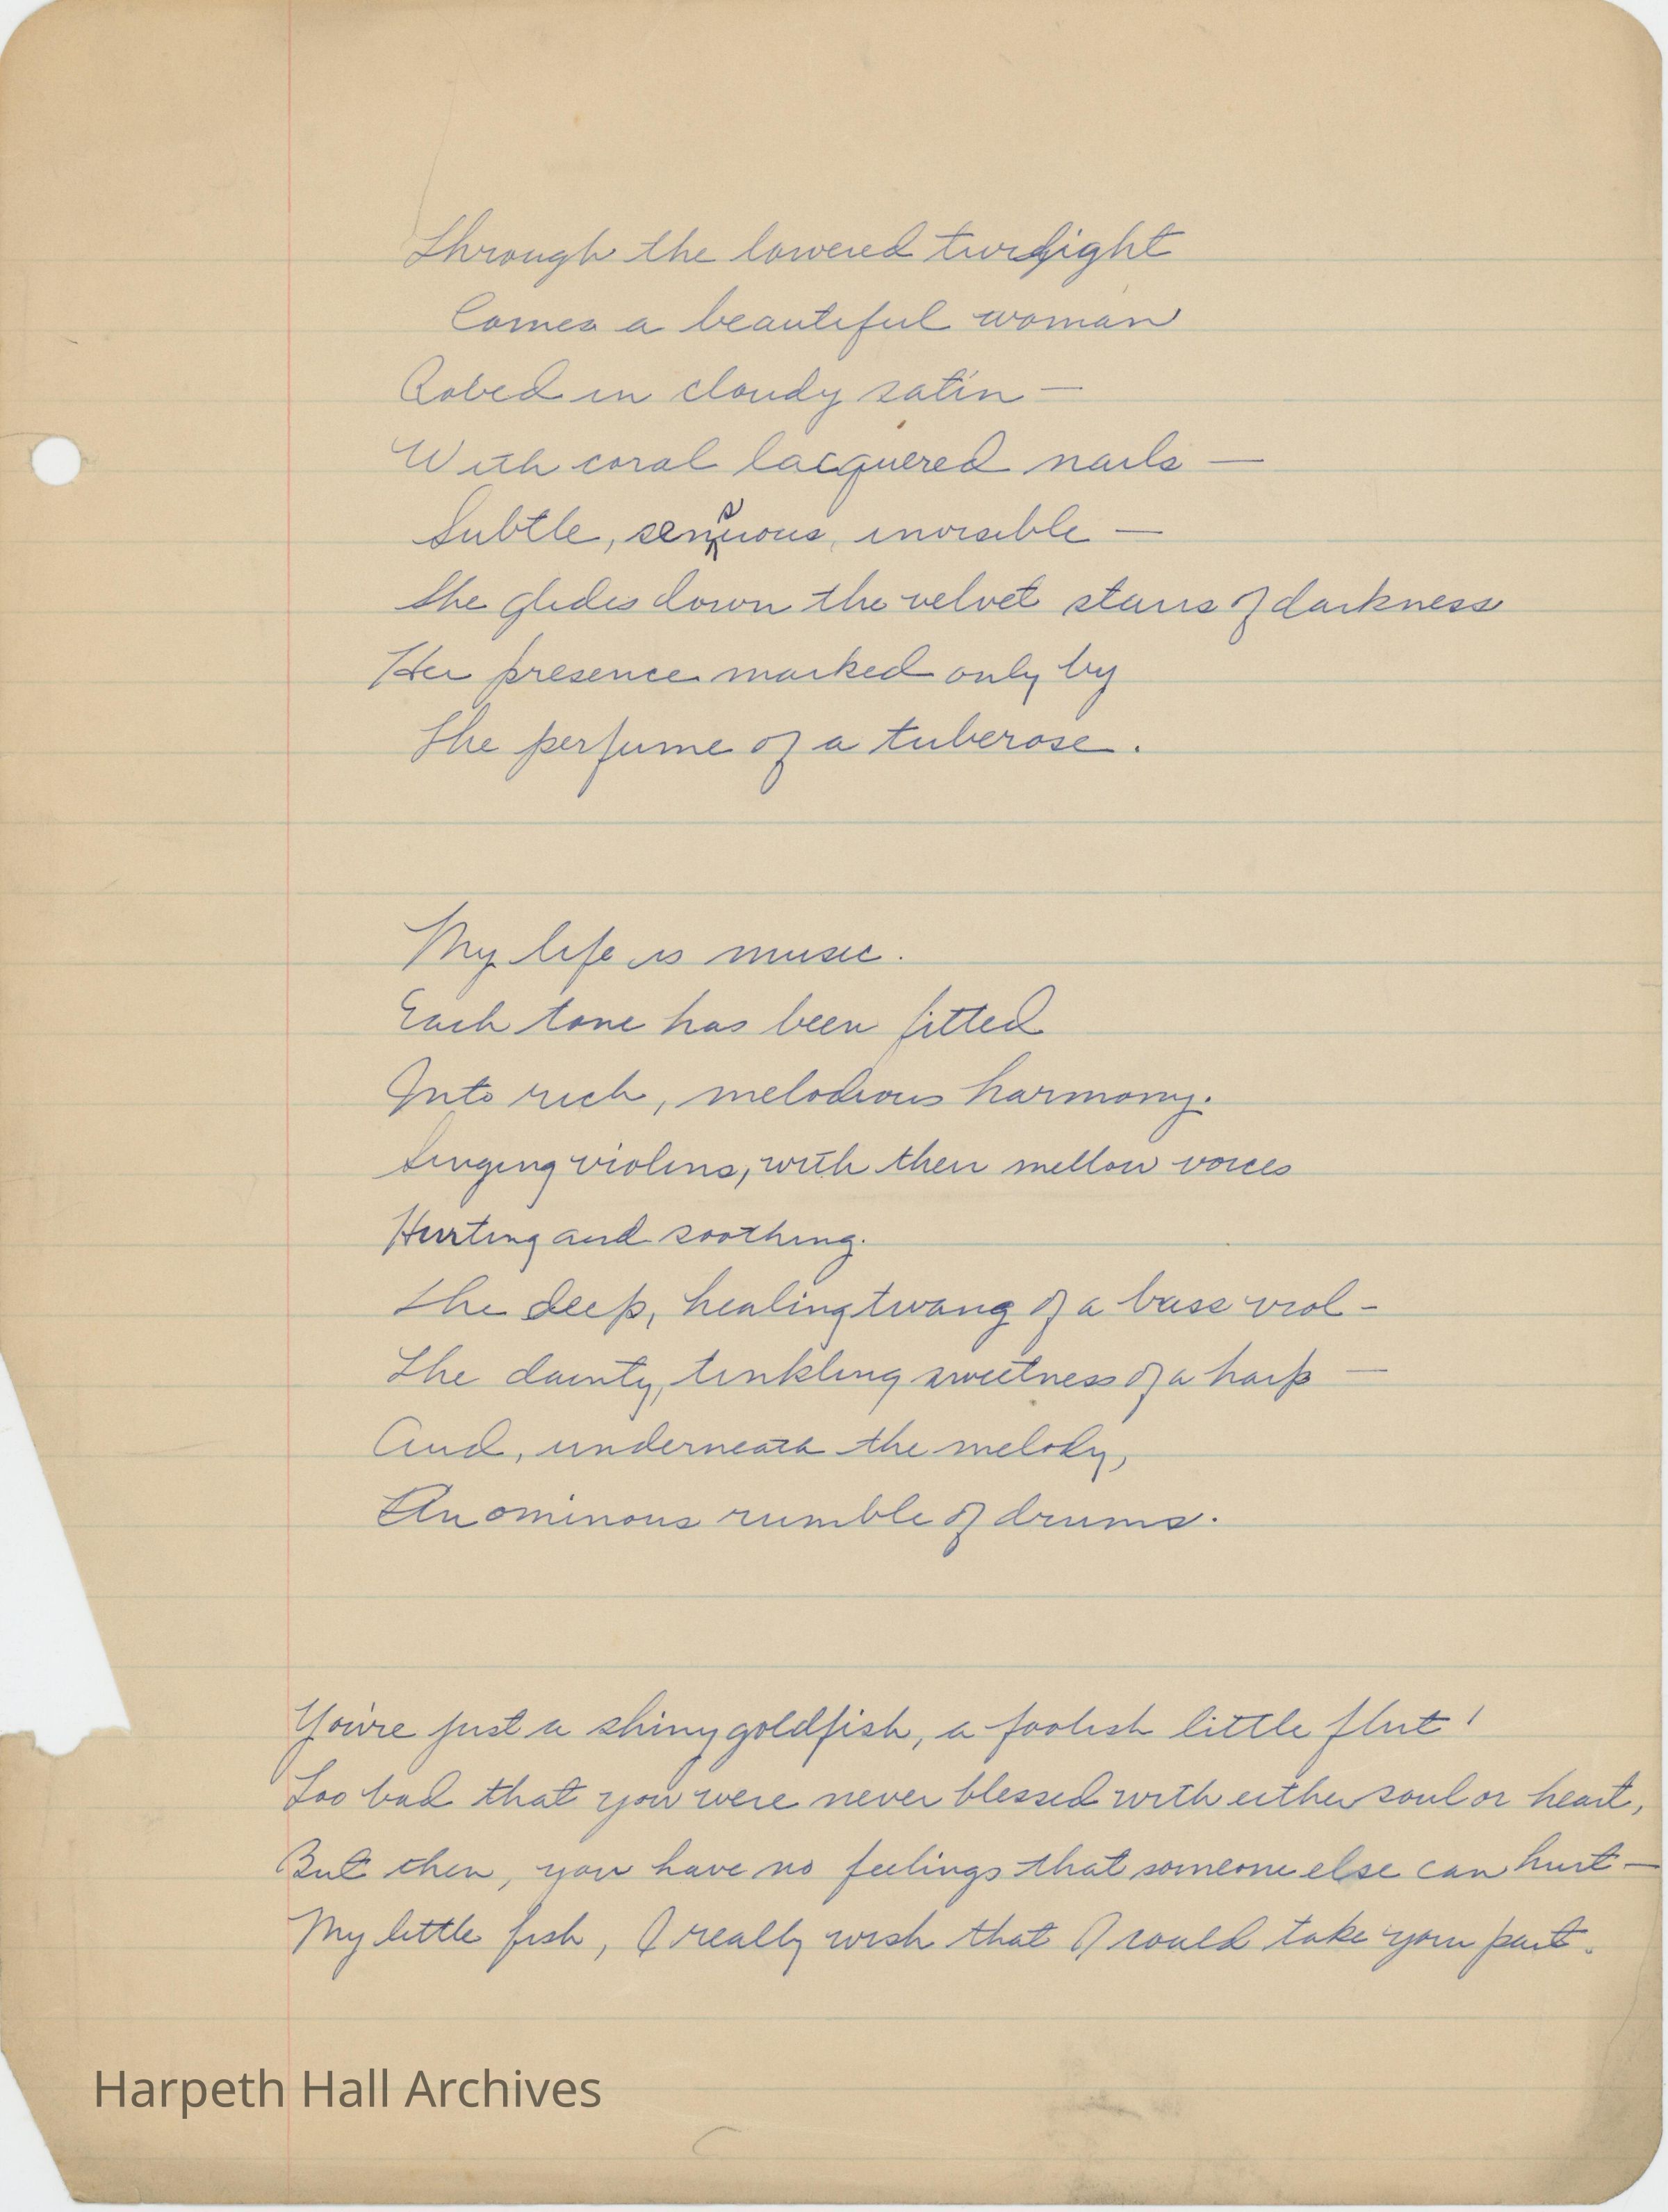 Through the lowered twilight
Comes a beautiful woman
Robed in cloudy satin —
With coral lacquered nails —
Subtle, sensuous, invisible —
She glides down the velvet stairs of darkness
Her presence marked only by
The perfume of a tuberose.
My life is music.
Each tone has been fitted
Into rich, melodious harmony.
Singing violins, with their mellow voices
Hurting and soothing.
The deep, healing twang of a bass viol -
The dainty, tinkling sweetness of a harp —
And, underneath the melody,
An ominous rumble of drums.
You're just a shiny goldfish, a foolish little flirt!
Too bad that you were never blessed with either soul or heart,
But then, you have no feelings that someone else can hurt —
My little fish, I really wish that I could take your part.
Harpeth Hall Archives